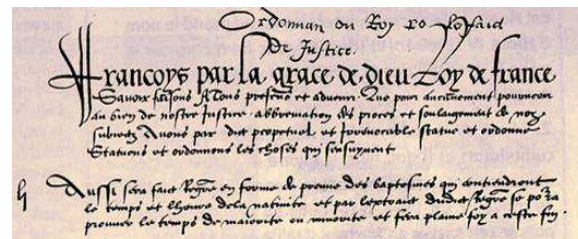 Ordonnan du Roy sō le faict
de Justice.
Francoys par la grace de dieu Roy de france
Savoir faisons A tous presens et advenir. Que pour aucunement pourveoir
au bien de nostre Justice abbreviation des proces et soulagement de noz
subiectz Avons par edict perpetuel et irrevocable statue et ordonne
Statuons et ordonnons les choses qui sensuyvent
Aussi sera faict Regrē en forme de preuve des baptesmes qui contiendront
le temps et lheure dela nativite et par lextraict dudict Regrē se porra
prouver le temps de maiorite ou minorite et fera plaine foy a ceste fin.